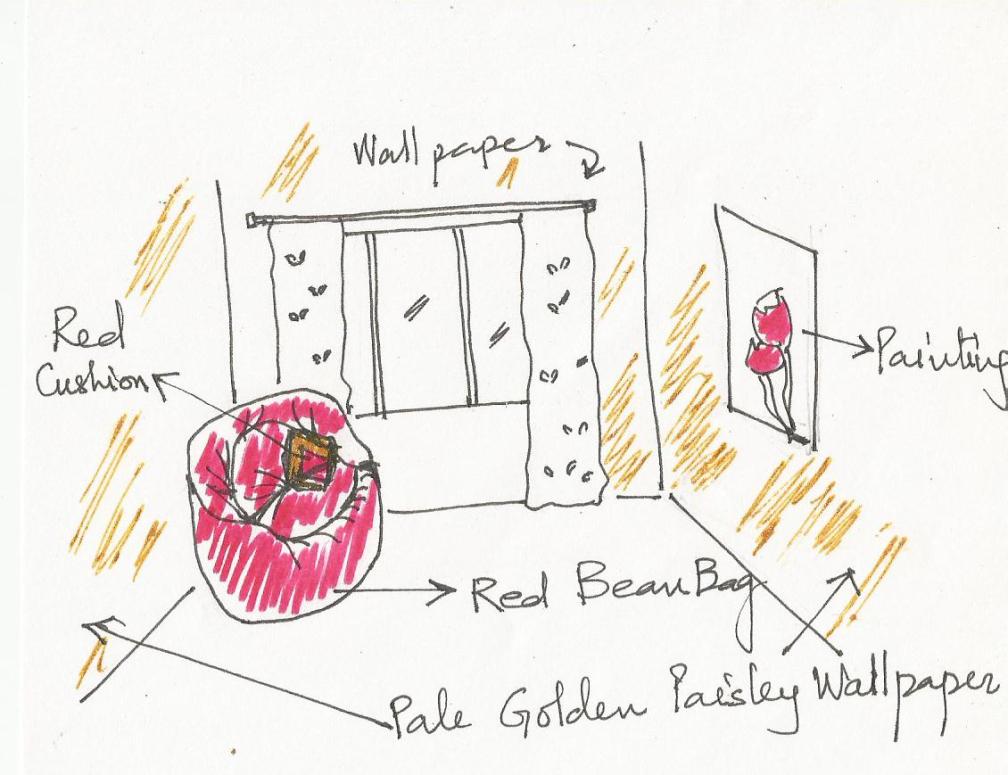 Wallpaper
Red
Cushion
Painting
Red BeanBag
Pale Golden Paisley Wallpaper